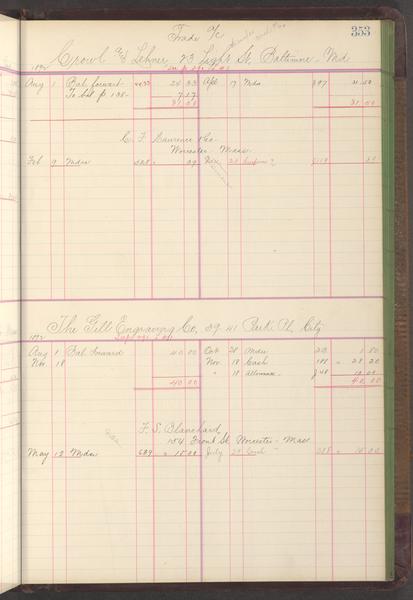 Trade a/c
353
Crowl & Lehner, 23 Light St. Baltimore - Md
1892
Aug 1 Bal. forward 24 33 Apl 17 Mdse 31 50
To bal p 198 - 7 17
31 50 31 50
C. F. Lawrence & Co
Worcester Mass.
Feb 9 Mdse 528 " 39 Nov
The Gill Engraving Co, 39 41 Park Pl. City
1892
Aug 1 Bal. forward 40 00 Oct 28 Mdse 1 80
Nov. 18 Nov. 18 Cash 28 20
" 18 Allowance 10 00
40 00 40 00
F. S. Blanchard
154 Front St. Worcester - Mass.
May 12 Mdse 689 " 18 00 July Cash " 18 00